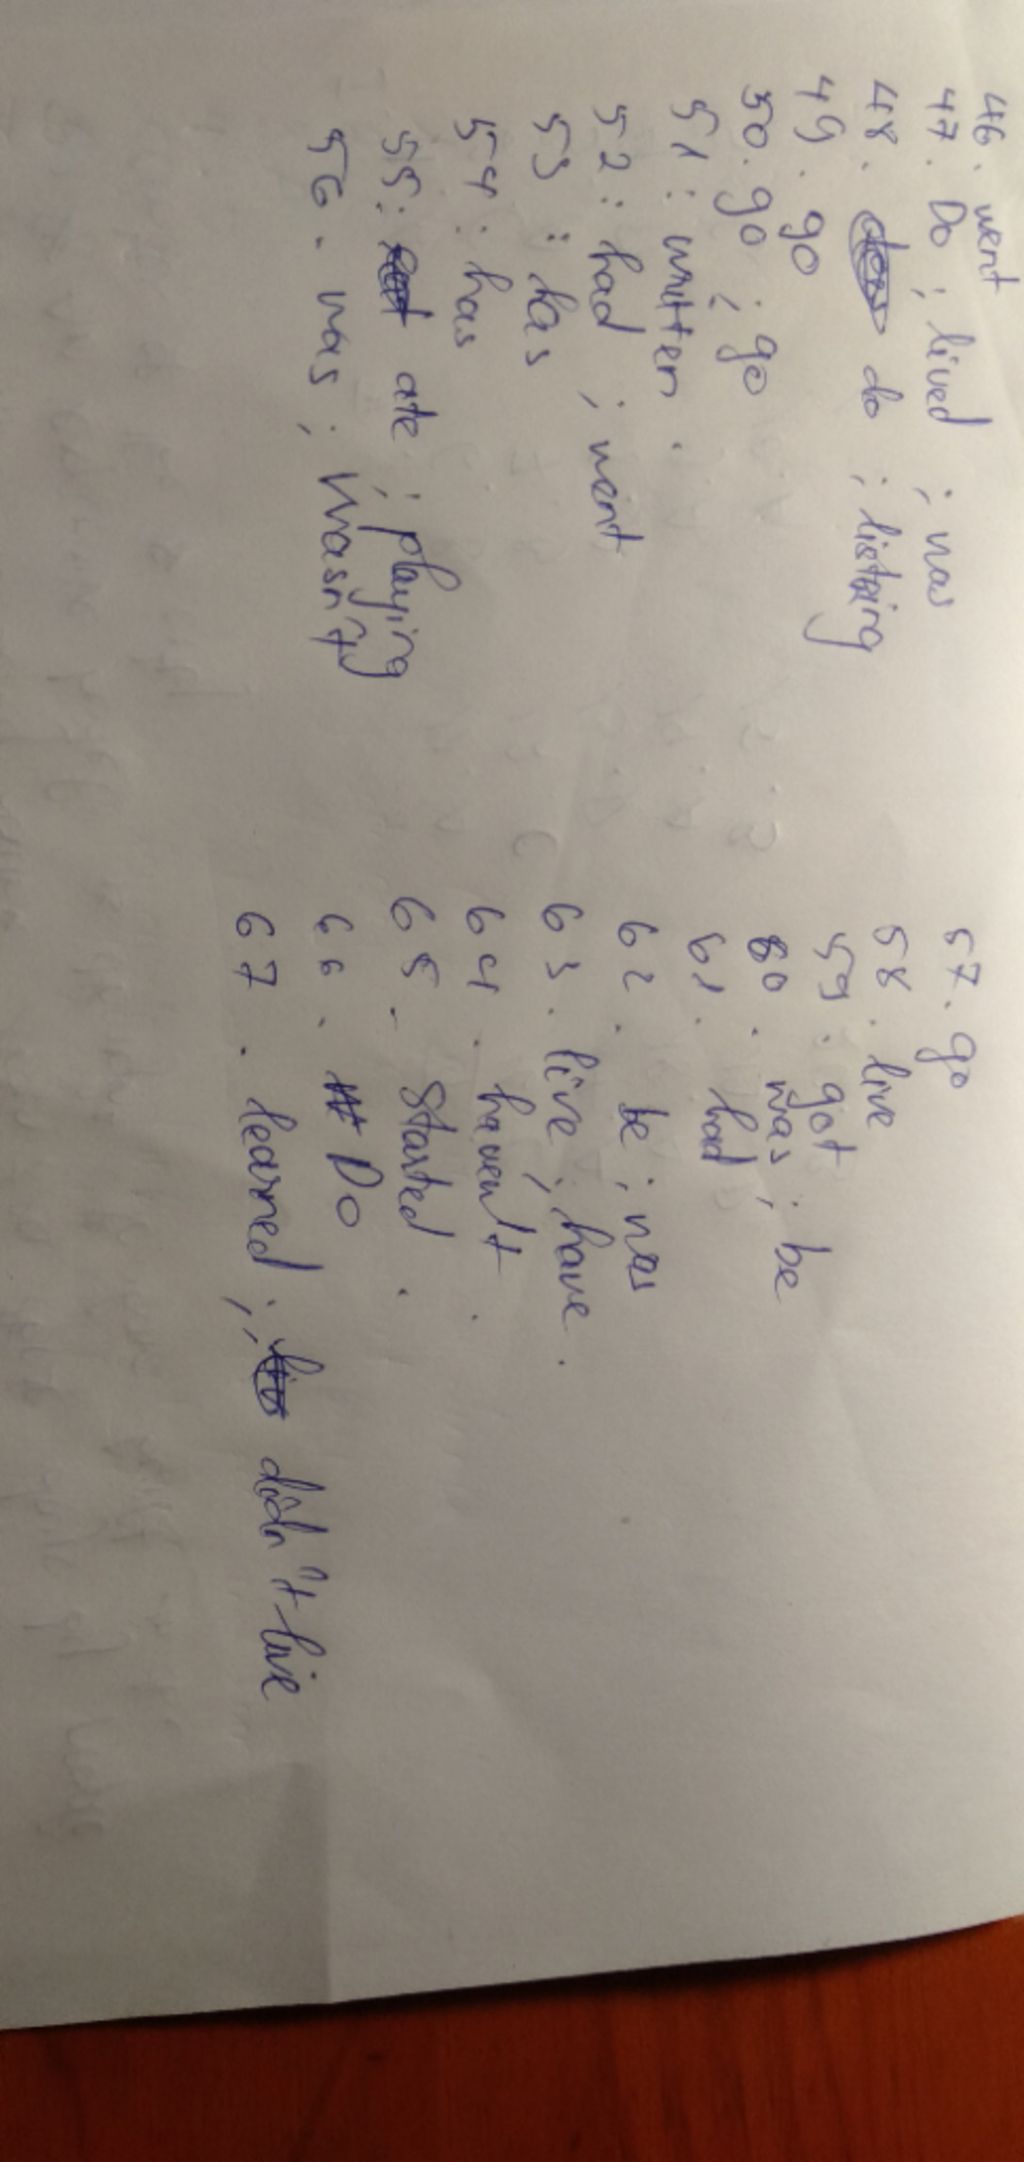 46. went
47. Do ; lived ; was
48. do ; listning
49. go
50. go ; go
51 : written.
52 : had ; went
53 : has
54 : has
55 : ate ; playing
56. was ; wasn't
57. go
58. live
59. got
60. was ; be
61. had
62. be ; was
63. live ; have.
64. haven't.
65. started.
66. DO
67. learned ; didn't live